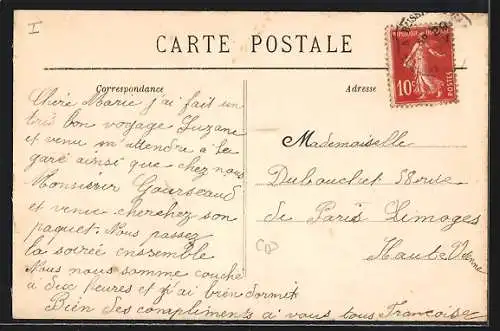 I
CARTE POSTALE
Correspondance
Chère Marie j'ai fait un
tres bon voyage Suzane
et venu m'attendre a la
gare ainsi que chez nous
Monsieur Gourseaud
et venie cherchez son
paquet. Nous passez
la soirée enssemble
Nous nous somme couché
a dix heures et j'ai bien dormit
Bien des compliments a vous tous Francoise
Adresse
Mademoiselle
Dubouchet 58 rue
de Paris Limoges
Haute Vienne
REPUBLIQUE FRANÇAISE
10c
POSTES